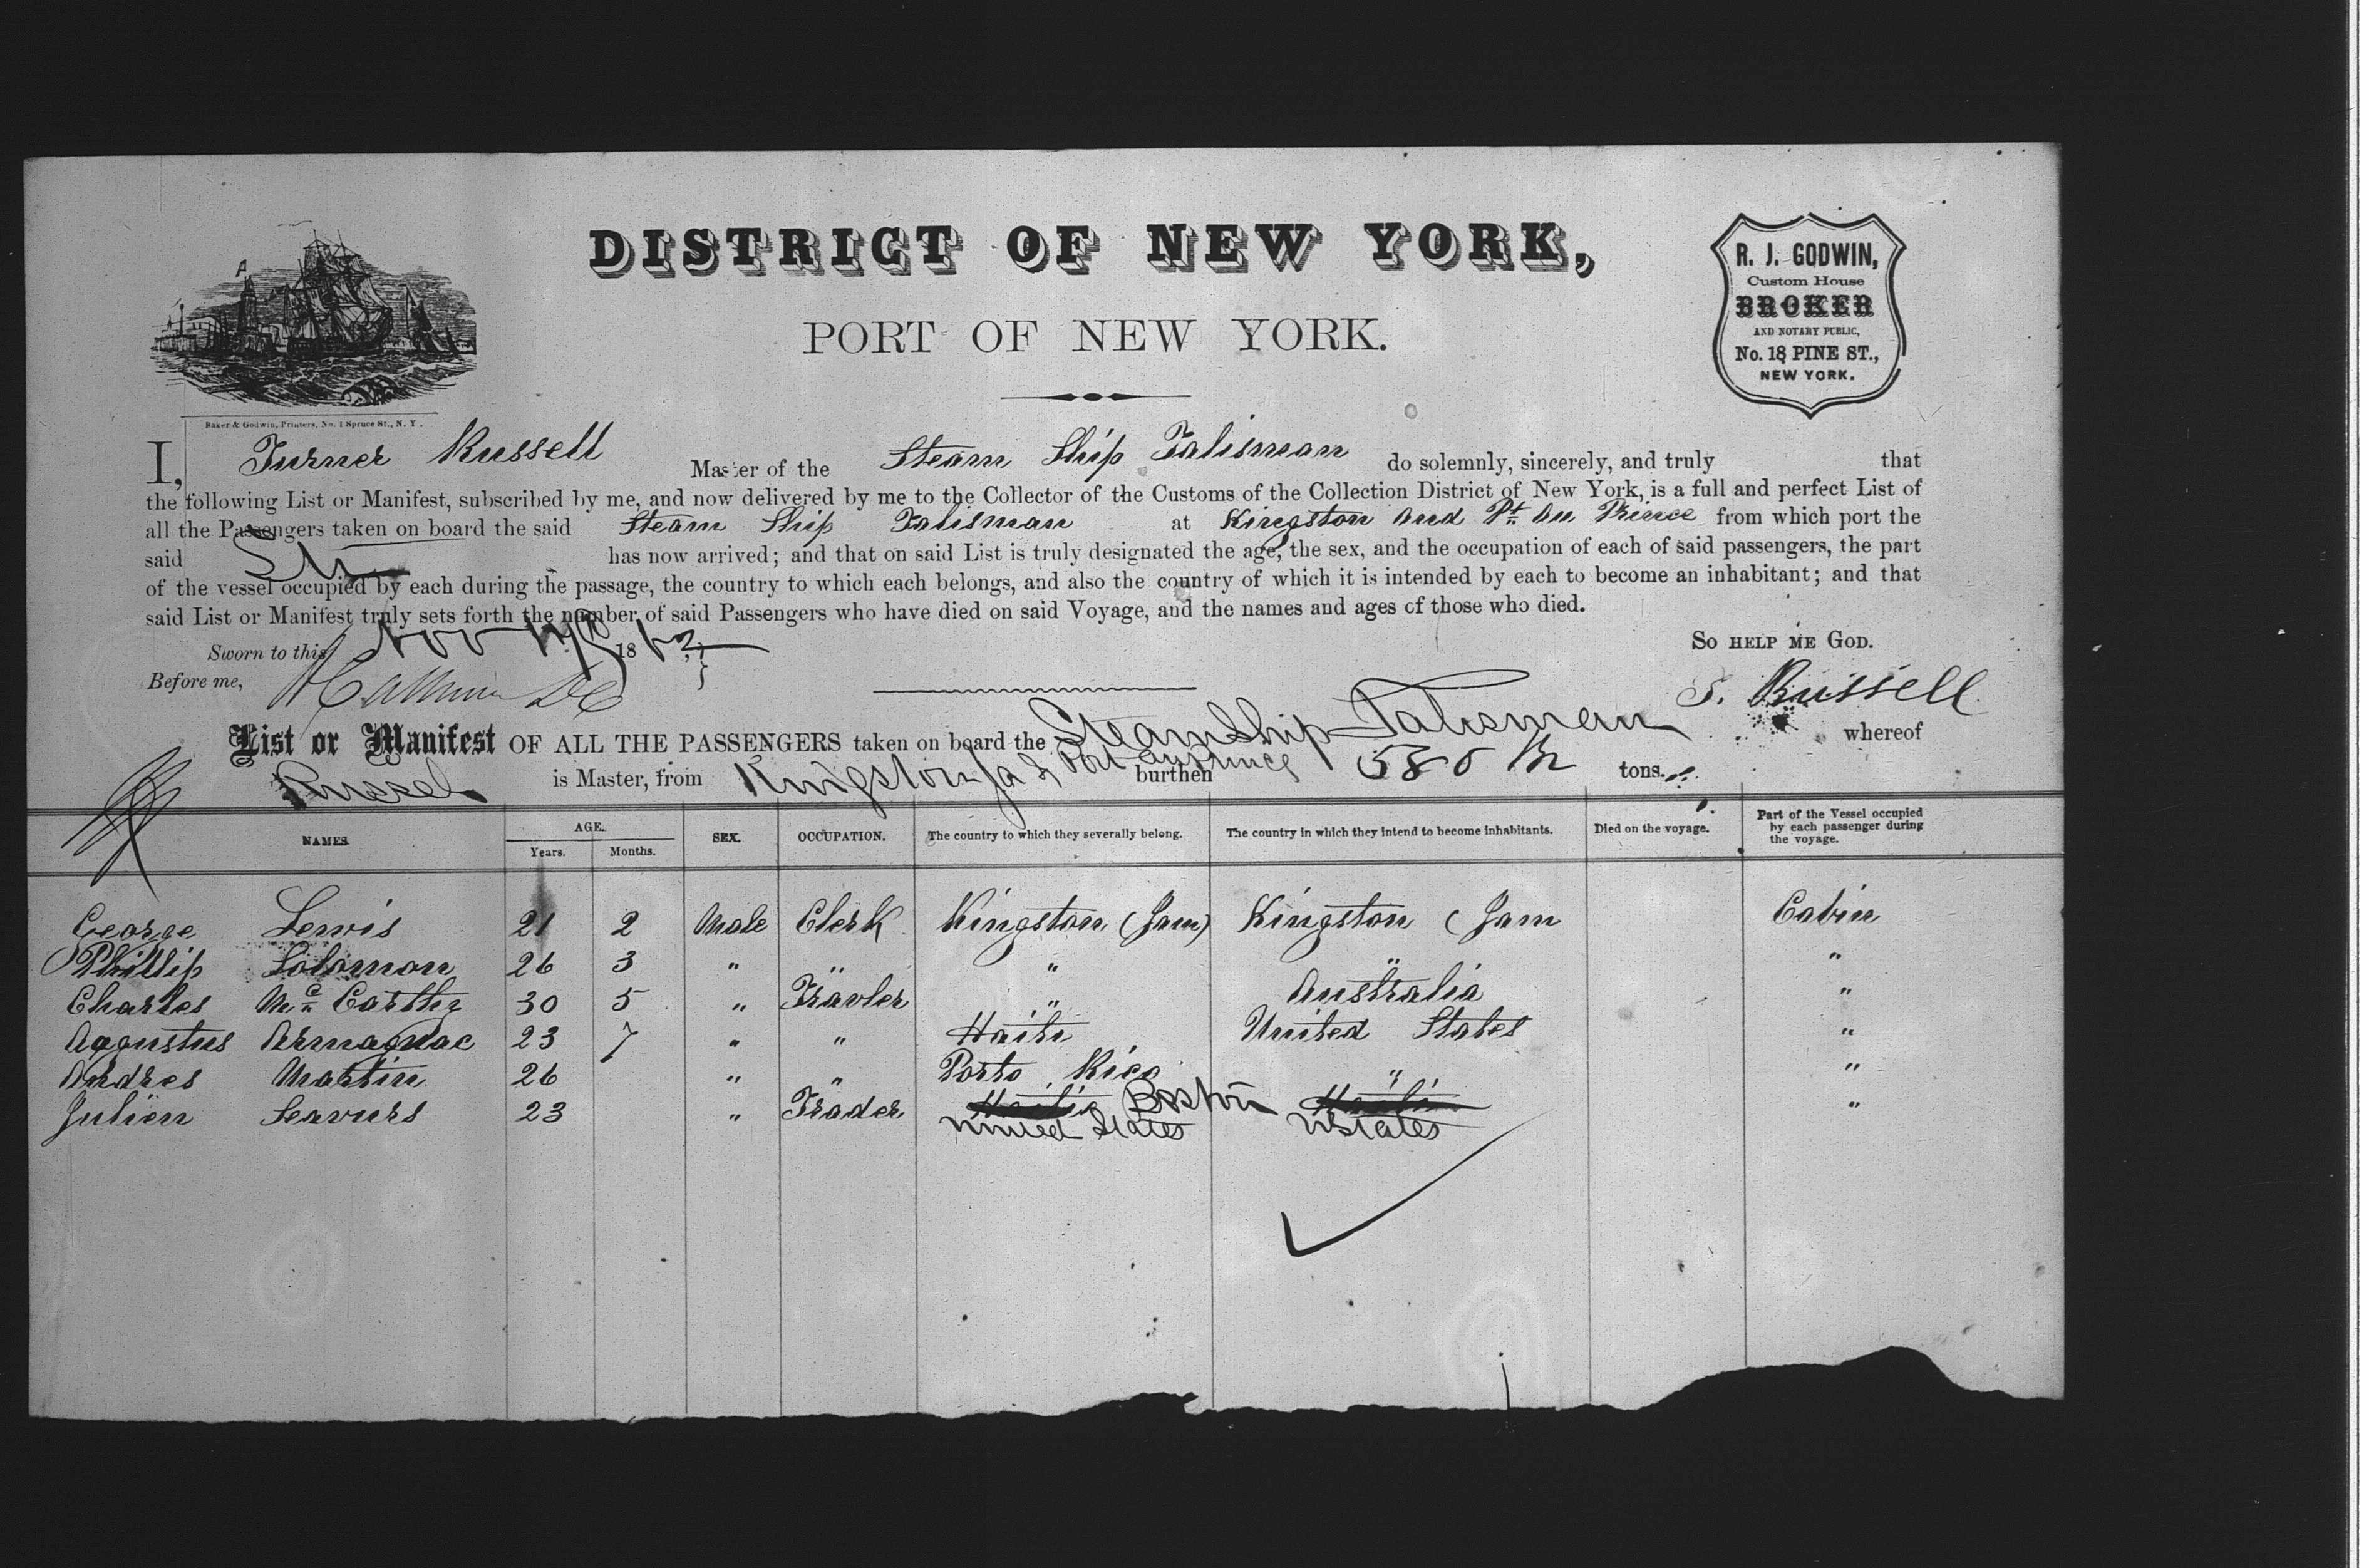 DISTRICT OF NEW YORK,
PORT OF NEW YORK.
R. J. GODWIN,
Custom House
BROKER
AND NOTARY PUBLIC,
No. 18 PINE ST.,
NEW YORK.
Baker & Godwin, Printers, No. 1 Spruce St., N. Y.
I, Turner Russell Master of the Steam Ship Talisman do solemnly, sincerely, and truly that
the following List or Manifest, subscribed by me, and now delivered by me to the Collector of the Customs of the Collection District of New York, is a full and perfect List of
all the Passengers taken on board the said Steam Ship Talisman at Kingston and Pt. Au Prince from which port the
said Str has now arrived; and that on said List is truly designated the age, the sex, and the occupation of each of said passengers, the part
of the vessel occupied by each during the passage, the country to which each belongs, and also the country of which it is intended by each to become an inhabitant; and that
said List or Manifest truly sets forth the number of said Passengers who have died on said Voyage, and the names and ages of those who died.
Sworn to this Nov 18 63 SO HELP ME GOD.
Before me, T. Russell
List or Manifest OF ALL THE PASSENGERS taken on board the SteamShip Talisman whereof
Russel is Master, from Kingston Ja & Port au Prince burthen 580 tons.
NAMES. AGE. Years. Months. SEX. OCCUPATION. The country to which they severally belong. The country in which they intend to become inhabitants. Died on the voyage. Part of the Vessel occupied by each passenger during the voyage.
George Lewis 21 2 Male Clerk Kingston (Jam) Kingston (Jam Cabin
Phillip Solomon 26 3 " " " " "
Charles Mc Carthy 30 5 " Travler " Australia "
Augustus Armagnac 23 7 " " Haiti United States "
Andres Martin 26 " " Porto Rico " "
Julien Seavurs 23 " Trader Haiti Boston Haiti "
United States UStates